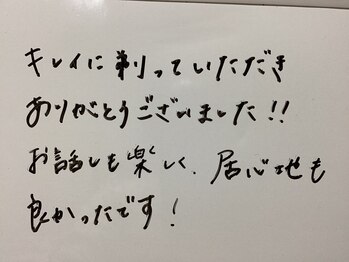 キレイに剃っていただき
ありがとうございました!!
お話しも楽しく、居心地も
良かったです!